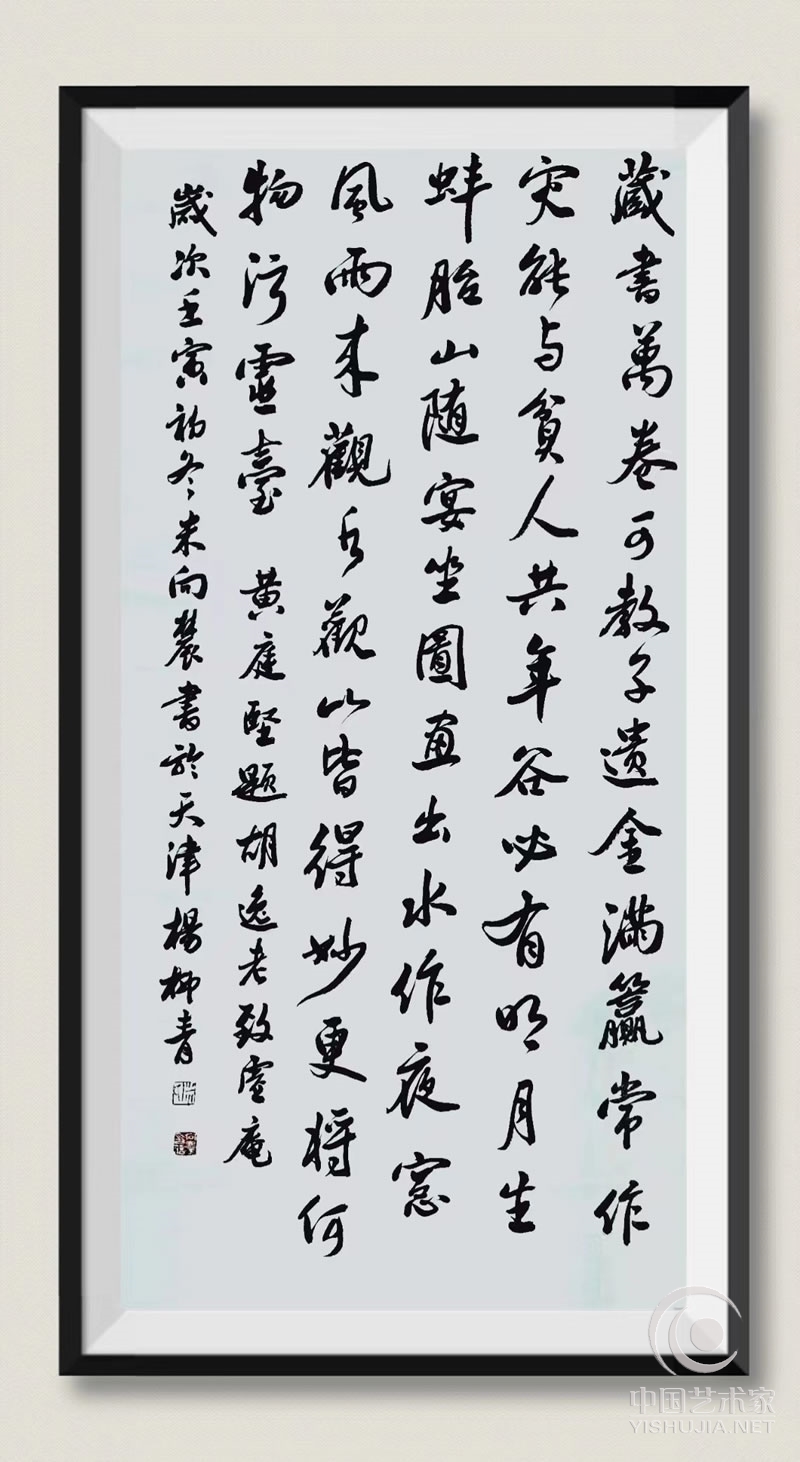 藏書萬卷可教子遺金滿籯常作
灾能与貧人共年谷必有明月生
蚌胎山随宴坐圖畫出水作夜窓
風雨来觀水觀山皆得妙更將何
物污靈臺 黄庭堅題胡逸老致虛庵
歲次壬寅初冬向農書於天津楊柳青
中国艺术家
YISHUJIA.NET